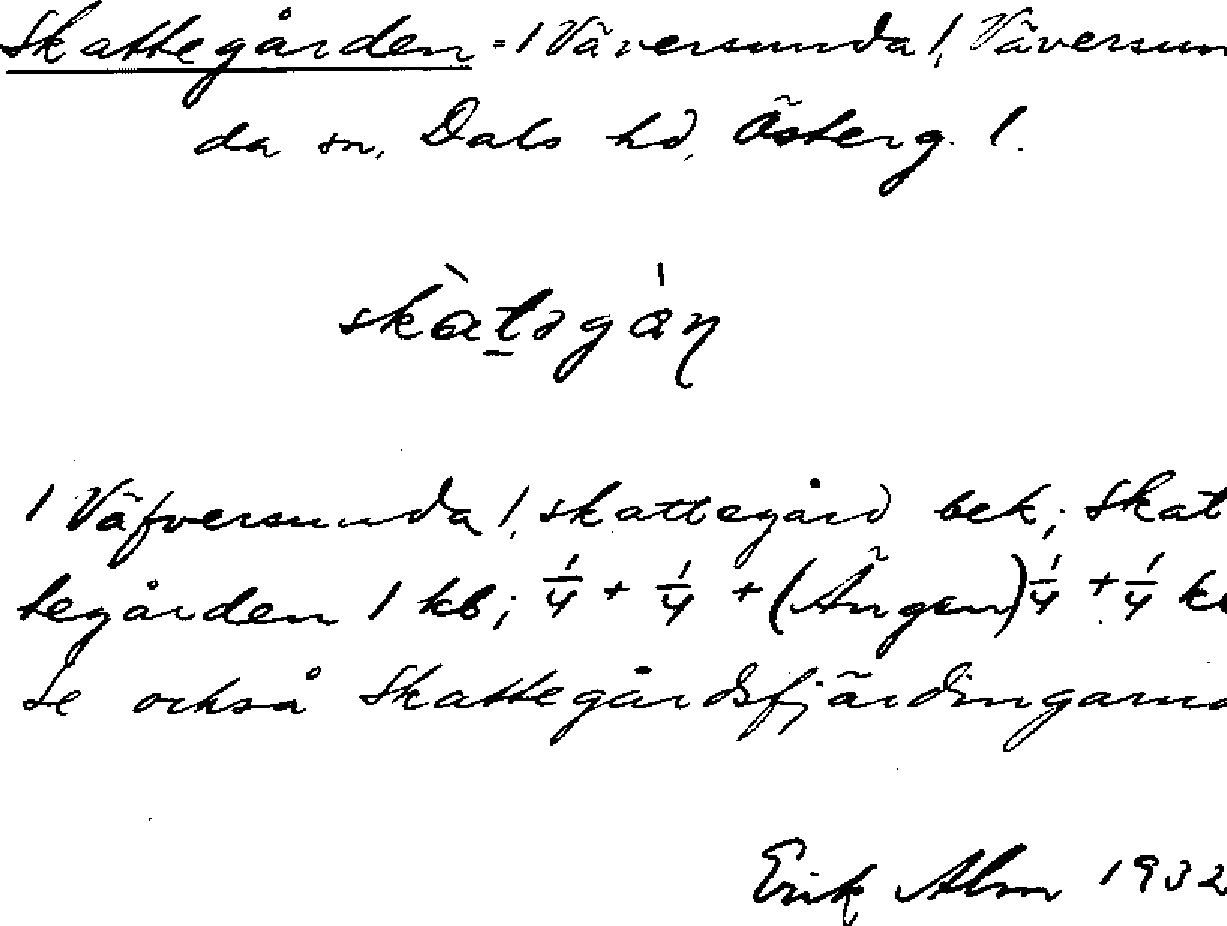 Skattegården = 1 Väversunda 1, Väversun
da sn, Dals hd, Österg. l.
skàtǝgán
1 Väfversunda 1, skattegård bek; Skat
tegården 1 kb; 1/4 + 1/4 + (Ängen) 1/4 + 1/4 kb
Se också Skattegårdsfjärdingarna
Erik Alm 1932